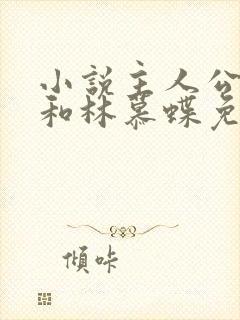 小说主人公
和林慕蝶免
倾咔